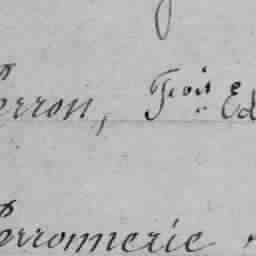 Perron, Frois Ed
Perronnerie